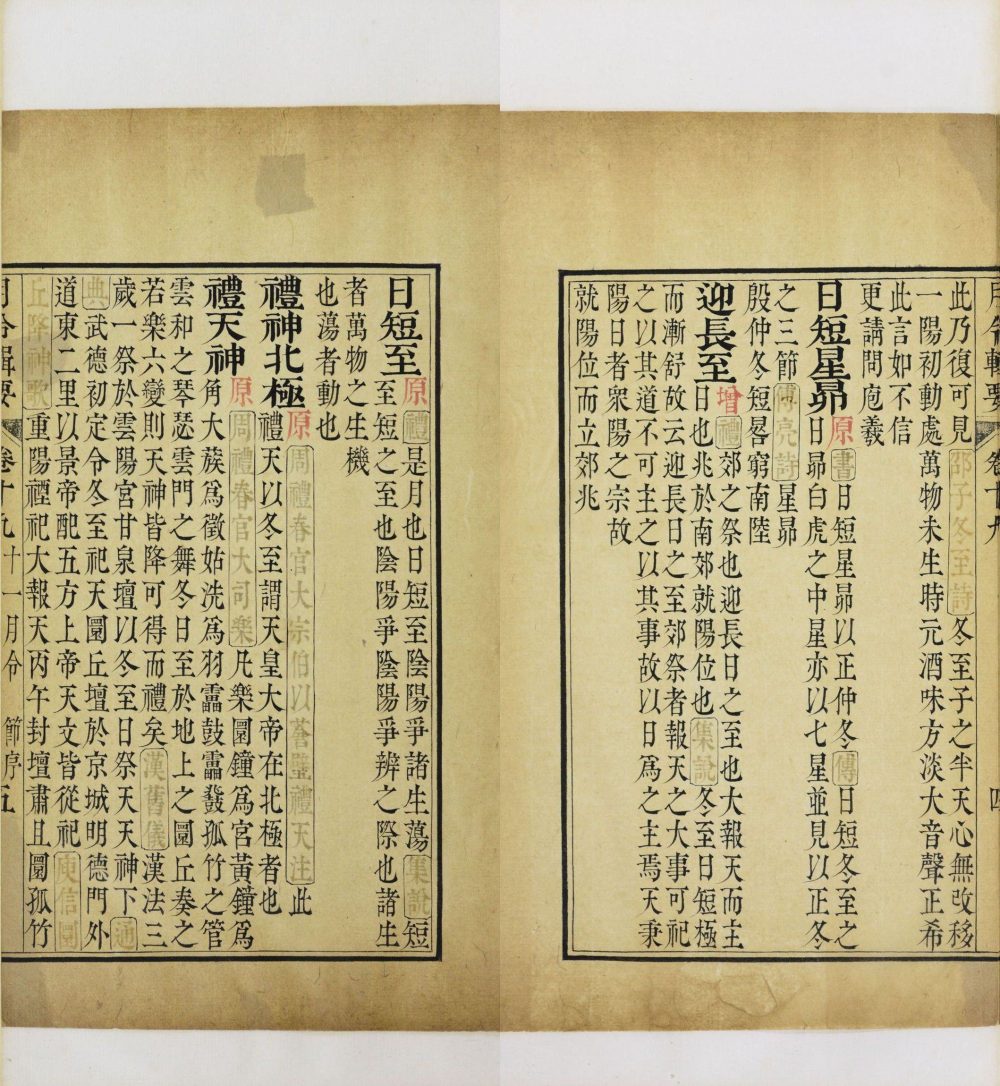 月令輯要 卷十九 四
此乃復可見邵子冬至詩冬至子之半天心無改移
一陽初動處萬物未生時元酒味方淡大音聲正希
此言如不信
更請問庖羲
日短星昴原書日短星昴以正仲冬傳日短冬至之
日昴白虎之中星亦以七星並見以正冬
之三節傅亮詩星昴
殷仲冬短晷窮南陸
迎長至增禮郊之祭也迎長日之至也大報天而主
日也兆於南郊就陽位也集說冬至日短極
而漸舒故云迎長日之至郊祭者報天之大事可祀
之以其道不可主之以其事故以日爲之主焉天秉
陽日者衆陽之宗故
就陽位而立郊兆
日短至原禮是月也日短至陰陽爭諸生蕩集說短
至短之至也陰陽爭陰陽爭辨之際也諸生
者萬物之生機
也蕩者動也
禮神北極原周禮春官大宗伯以蒼璧禮天注此
禮天以冬至謂天皇大帝在北極者也
禮天神原周禮春官大司樂凡樂圜鐘爲宮黃鐘爲
角大蔟爲徵姑洗爲羽靁鼓靁鼗孤竹之管
雲和之琴瑟雲門之舞冬日至於地上之圜丘奏之
若樂六變則天神皆降可得而禮矣漢舊儀漢法三
歲一祭於雲陽宮甘泉壇以冬至日祭天天神下通
典武德初定令冬至祀天圜丘壇於京城明德門外
道東二里以景帝配五方上帝天文皆從祀庾信圜
丘降神歌重陽禋祀大報天丙午封壇肅且圜孤竹
月令輯要 卷十九 十一月令 節序 五